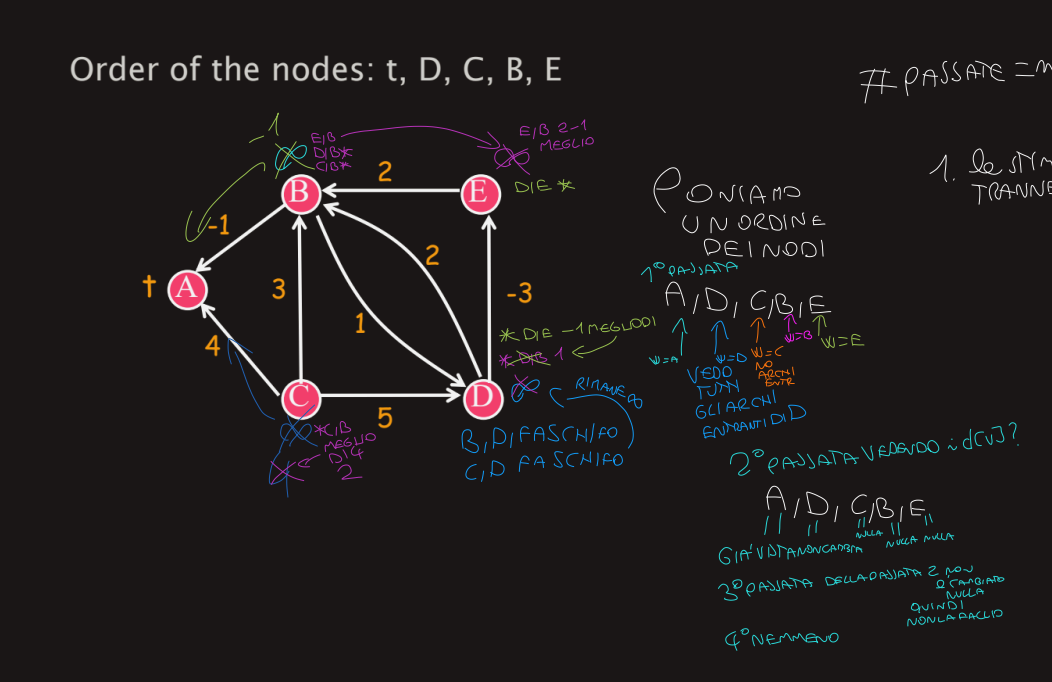 Order of the nodes: t, D, C, B, E
# PASSATE = n
-1
E/B
D/B*
C/B*
E/B 2-1
MEGLIO
B
2
E
D/E *
-1
t
A
3
2
1
-3
4
C
5
D
* D/E -1 MEGLODI
* D/B 1
*C/B
MEGLIO
DI 4
2
RIMANE
B, D, FA SCHIFO
C, D FA SCHIFO
1.
TRANNE
PONIAMO
UN ORDINE
DEI NODI
1° PASSATA
A, D, C, B, E
W=A
W=D
W=C
W=B
W=E
VEDO
TUTTI
GLI ARCHI
ENTRANTI DI D
NO
ARCHI
ENTR
2° PASSATA VEDENDO i d[v]?
A, D, C, B, E
GIA' VISTA NON CAMBIA
NULLA
NULLA
NULLA
3° PASSATA DELLA PASSATA 2 NON
È CAMBIATO
NULLA
QUINDI
NON LA FACCIO
4° NEMMENO